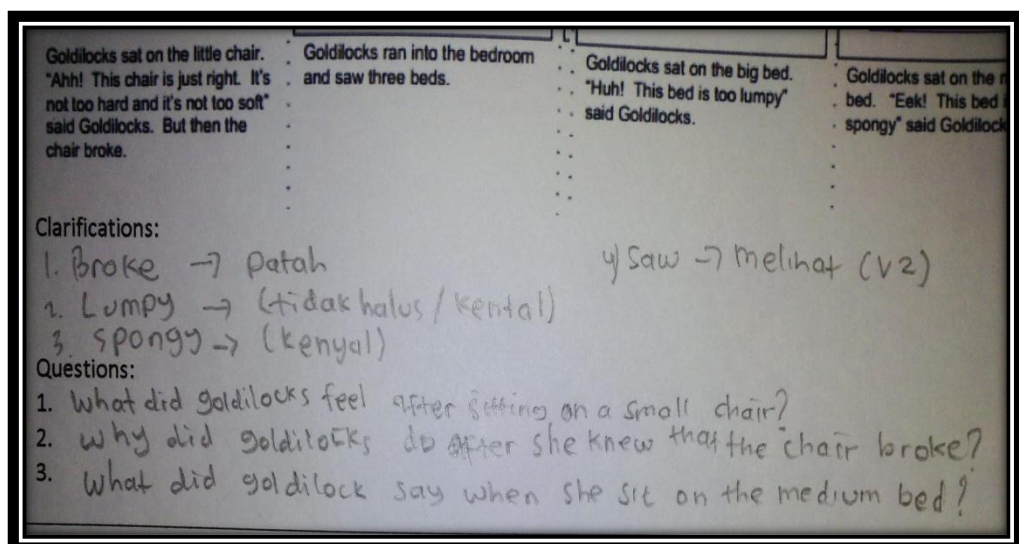 Goldilocks sat on the little chair.
"Ahh! This chair is just right. It's
not too hard and it's not too soft"
said Goldilocks. But then the
chair broke.
Goldilocks ran into the bedroom
and saw three beds.
Goldilocks sat on the big bed.
"Huh! This bed is too lumpy"
said Goldilocks.
Goldilocks sat on the
bed. "Eek! This bed
spongy" said Goldilock
Clarifications:
1. Broke → patah
4) Saw → melihat (V2)
2. Lumpy → (tidak halus / kental)
3. Spongy → (kenyal)
Questions:
1. What did goldilocks feel after sitting on a small chair?
2. Why did goldilocks do after she knew that the chair broke?
3. What did goldilock say when she sit on the medium bed?